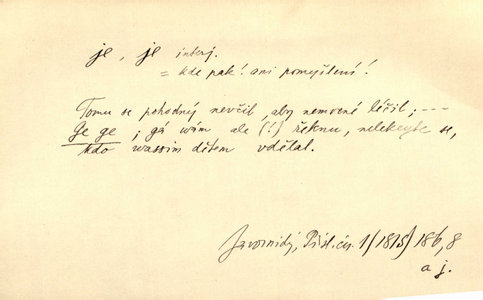 je, je interj.
= kde pak! ani pomyšlení!
Tomu se pohodný nevčil, aby nemocné léčil; ---
Ge ge; gá wám ale (!) řeknu, nelekeyte se,
kdo wassim dětem vdělal.
Javornický, Přít. čes. 1/(1815) 186, 8
a j.